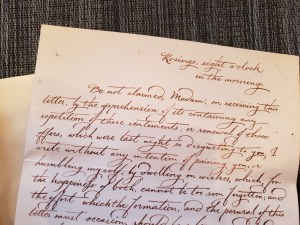 Rosings, eight o'clock
in the morning
Be not alarmed, Madam, on receiving this
letter, by the apprehension of its containing any
repetition of those sentiments, or renewal of those
offers, which were last night so disgusting to you. I
write without any intention of paining you, or
humbling myself, by dwelling on wishes, which, for
the happiness of both, cannot be too soon forgotten; and
the effort which the formation, and the perusal of this
letter must occasion, should